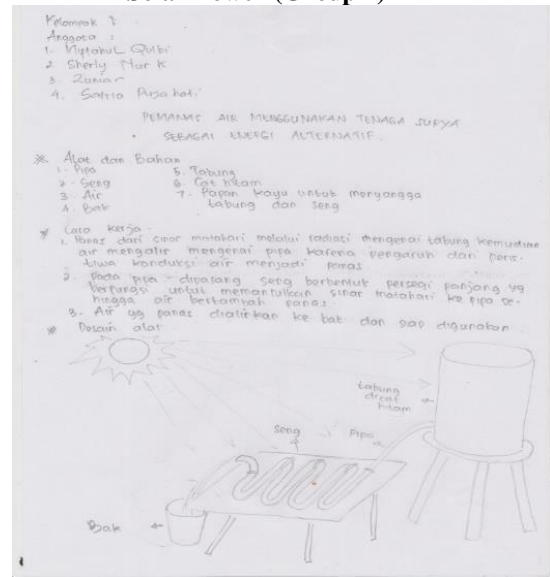 Kelompok
Anggota :
1. Miftahul Qulbi
2. Sherly Nur K
3. Zuniar
4. Satria
PEMANAS AIR MENGGUNAKAN TENAGA SURYA
SEBAGAI ENERGI ALTERNATIF.
* Alat dan Bahan
1. Pipa
2. Seng
3. Air
4. Bak
5. Tabung
6. Cat hitam
7. Papan kayu untuk menyangga
tabung dan seng
* Cara kerja
1. Panas dari sinar matahari melalui radiasi mengenai tabung kemudian
air mengalir mengenai pipa karena pengaruh dan peris-
tiwa konduksi air menjadi panas
2. pada pipa dipasang seng berbentuk persegi panjang yg
berfungsi untuk memantulkan sinar matahari ke pipa se-
hingga air bertambah panas.
3. Air yg panas dialirkan ke bak dan siap digunakan.
* Desain alat
tabung
dicat
hitam
Seng
Pipa
Bak